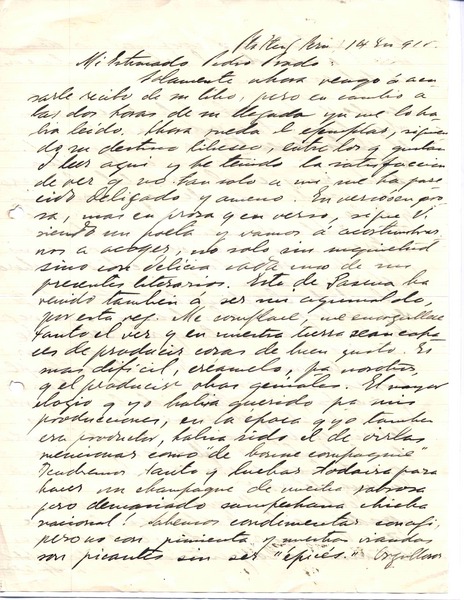 14 En 915.
Mi Estimado Pedro Prado
Solamente ahora vengo á acu-
sarle recibo de su libro, pero en cambio á
las dos horas de su llegada ya me lo ha-
bia leido. Ahora rueda el ejemplar, siguien-
do su destino entre los q gustan
d leer aqui y he tenido la satisfaccion
de ver q no tan solo a mi me ha pare-
cido delicado y ameno. En verso en pro-
sa, mas en prosa q en verso, sigue Ud
siendo un poeta y vamos á acostumbrar-
nos a acoger, no solo sin inquietud
sino con delicia cada uno de sus
presentes literarios. Este de Pascua ha
venido tambien a ser un aguinaldo,
por esta vez. Me complace, me enorgullece
tanto el ver q en nuestra tierra sean capa-
ces de producir cosas de buen gusto. Es
mas dificil, creamelo, pa nosotros,
q el producir obras geniales. El mayor
elogio q yo habia querido pa mis
producciones, en la época q yo tambien
era productor, habia sido el de oirlas
mencionar como "de bonne compagnie"
Tendremos tanto q luchar todavia para
hacer un champagne de nuestra sabrosa
pero demasiado campechana chicha
nacional! Sabemos condimentar con aji,
pero no con pimienta y nuestras viandas
son picantes sin ser "épicés." Orgulloso